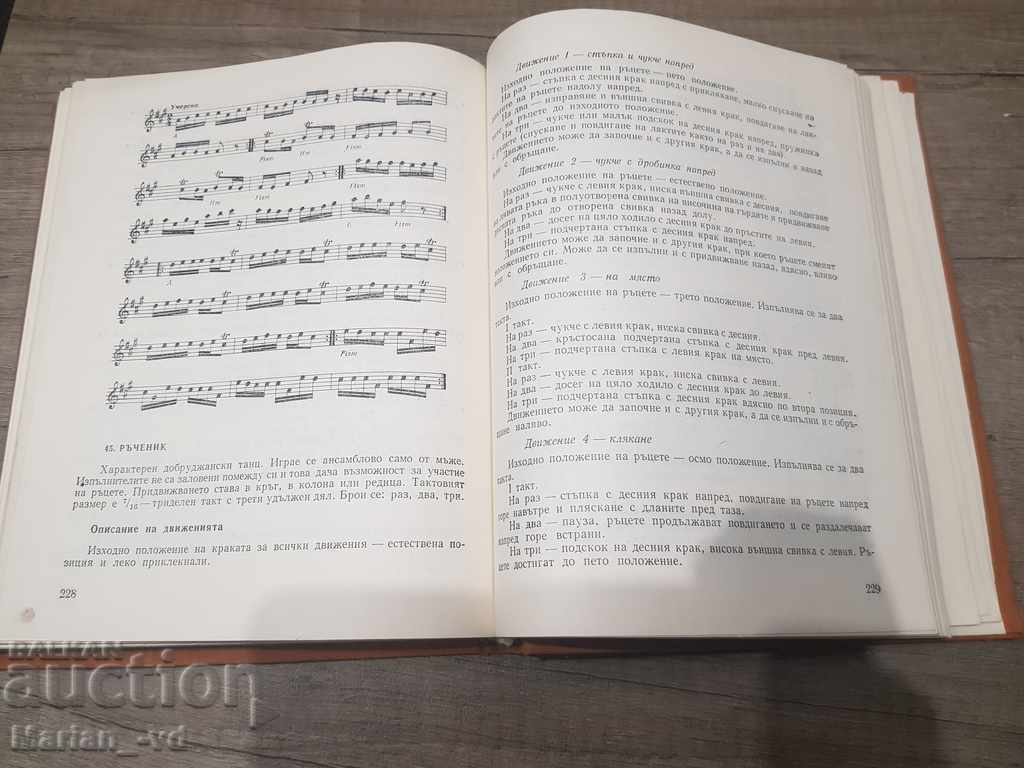 Умерено
A
Fism Hm Fism
Hm Fism
E Fism
A
Fism
45. РЪЧЕНИК
Характерен добруджански танц. Играе се ансамблово само от мъже.
Изпълнителите не са заловени помежду си и това дава възможност за участие
на ръцете. Придвижването става в кръг, в колона или редица. Тактовият
размер е 7/16 — триделен такт с трети удължен дял. Брои се: раз, два, три.
Описание на движенията
Изходно положение на краката за всички движения — естествена по-
зиция и леко приклекнали.
228
Движение 1 — стъпка и чукче напред
Изходно положение на ръцете — пето положение.
На раз — стъпка с десния крак напред с приклякане, малко спускане на
лактите на ръцете надолу напред.
На два — изправяне и външна свивка с левия крак, повдигане на лак-
тите на ръцете до изходното положение.
На три — чукче или малък подскок на десния крак напред, пружинка
с ръцете (спускане и повдигане на лактите както на раз и на два)
Движението може да започне и с другия крак, а да се изпълни и назад
или с обръщане.
Движение 2 — чукче с дробинка напред
Изходно положение на ръцете — естествено положение.
На раз — чукче с левия крак, ниска външна свивка с десния, повдигане
на лявата ръка в полуотворена свивка на височина на гърдите и придвижване
дясната ръка до отворена свивка назад долу.
На два — досег на цяло ходило с десния крак до пръстите на левия.
На три — подчертана стъпка с десния крак напред.
Движението може да започне и с другия крак, при което ръцете сменят
положението си. Може да се изпълни и с придвижване назад, вдясно, вляво
или с обръщане.
Движение 3 — на място
Изходно положение на ръцете — трето положение. Изпълнява се за два
такта.
I такт.
На раз — чукче с левия крак, ниска свивка с десния.
На два — кръстосана подчертана стъпка с десния крак пред левия.
На три — подчертана стъпка с левия крак на място.
II такт.
На раз — чукче с левия крак, ниска свивка с десния.
На два — досег на цяло ходило с десния крак до левия.
На три — подчертана стъпка с десния крак вдясно по втора позиция.
Движението може да започне и с другия крак, а да се изпълни и с обръ-
щане наляво.
Движение 4 — клякане
Изходно положение на ръцете — осмо положение. Изпълнява се за два
такта.
I такт.
На раз — стъпка с десния крак напред, повдигане на ръцете напред
горе навътре и пляскане с дланите пред таза.
На два — пауза, ръцете продължават повдигането и се раздалечават
напред горе встрани.
На три — подскок на десния крак, висока външна свивка с левия. Ръ-
цете достигат до пето положение.
229
BALKAN
auction
Marian_-vd